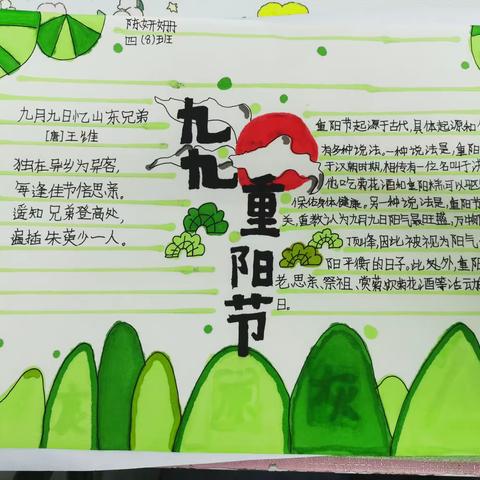 陈妍册
四(8)班
九月九日忆山东兄弟
[唐]王维
独在异乡为异客，
每逢佳节倍思亲。
遥知兄弟登高处，
遍插朱萸少一人。
九九重阳节
重阳节起源于古代，具体起源和
有多种说法。一种说法是，重阳
于汉朝时期，相传有一位名叫
他吃菊花酒和重阳糕可以
保佑身体健康。另一种说法是，重阳节
关，重数认为九月九日阳气最旺盛，万物
顶峰，因此被视为阳气
阳平衡的日子。此外，重阳
老、思亲、祭祖、赏菊、饮菊花酒等活动
日。